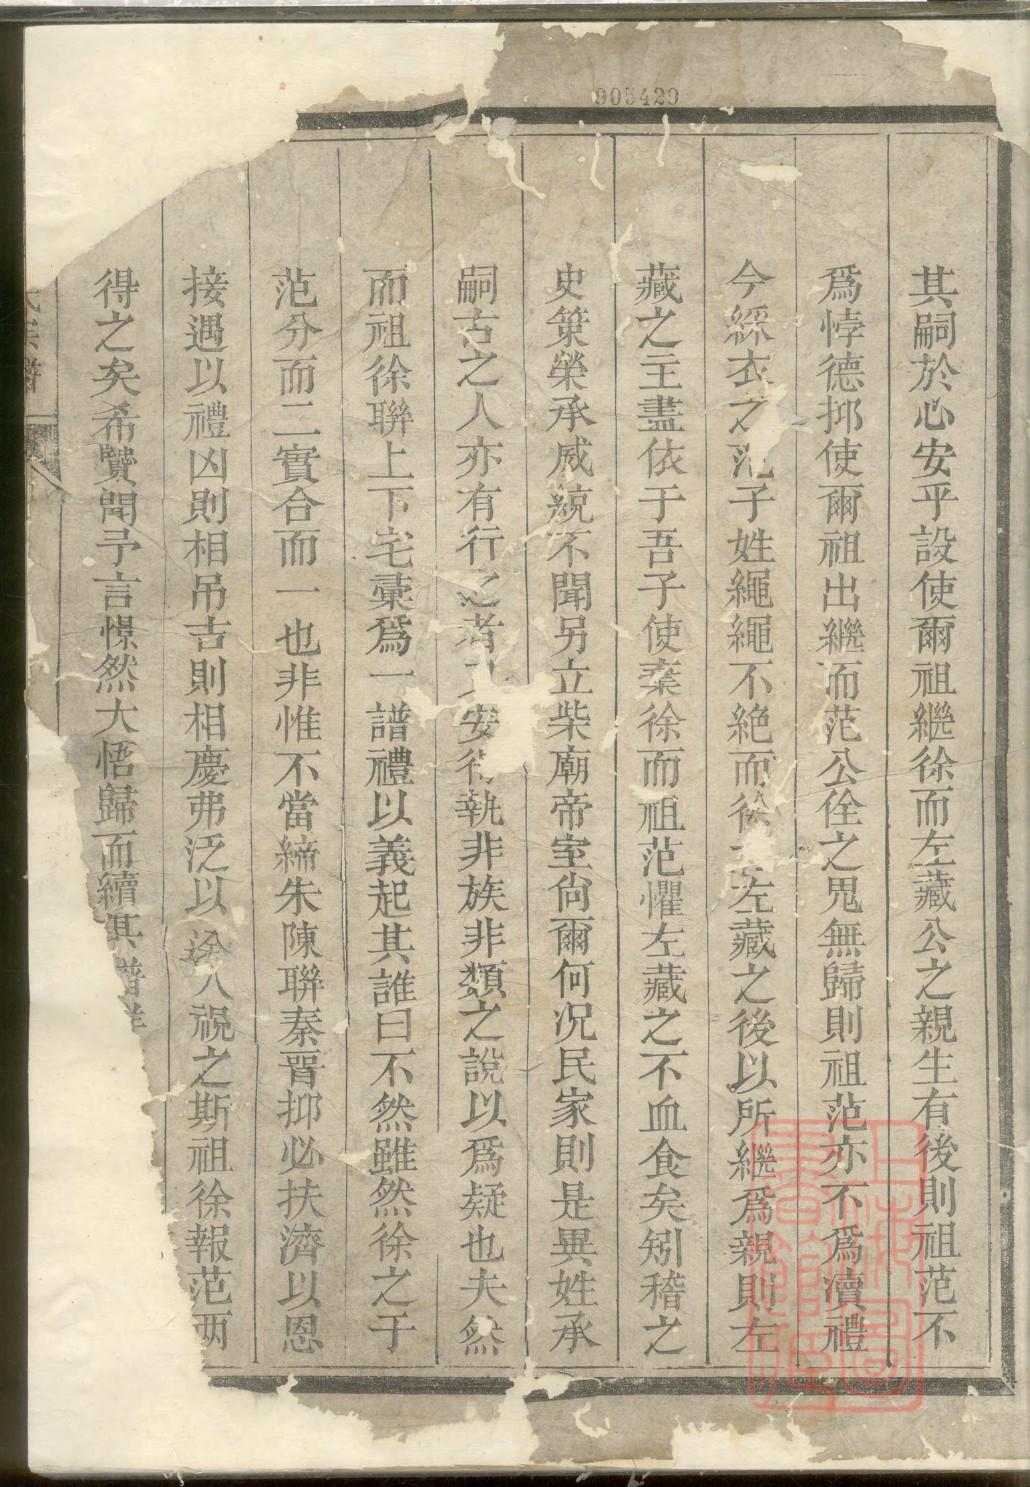 905429
其嗣於心安乎設使爾祖繼徐而左藏公之親生有後則祖范不
爲悖德抑使爾祖出繼而范公佺之鬼無歸則祖范亦不爲瀆禮
今綵衣之范子姓繩繩不絶而徐左藏之後以所繼爲親則左
藏之主盡依于吾子使棄徐而祖范懼左藏之不血食矣矧稽之
史策榮承威統不聞另立柴廟帝室尙爾何況民家則是異姓承
嗣古之人亦有行之者安得執非族非類之說以爲疑也夫然
而祖徐聯上下宅彙爲一譜禮以義起其誰曰不然雖然徐之于
范分而二實合而一也非惟不當締朱陳聯秦晋抑必扶濟以恩
接遇以禮凶則相吊吉則相慶弗泛以途人視之斯祖徐報范两
得之矣希贊聞予言憬然大悟歸而續其譜
氏宗譜
上海圖書館藏